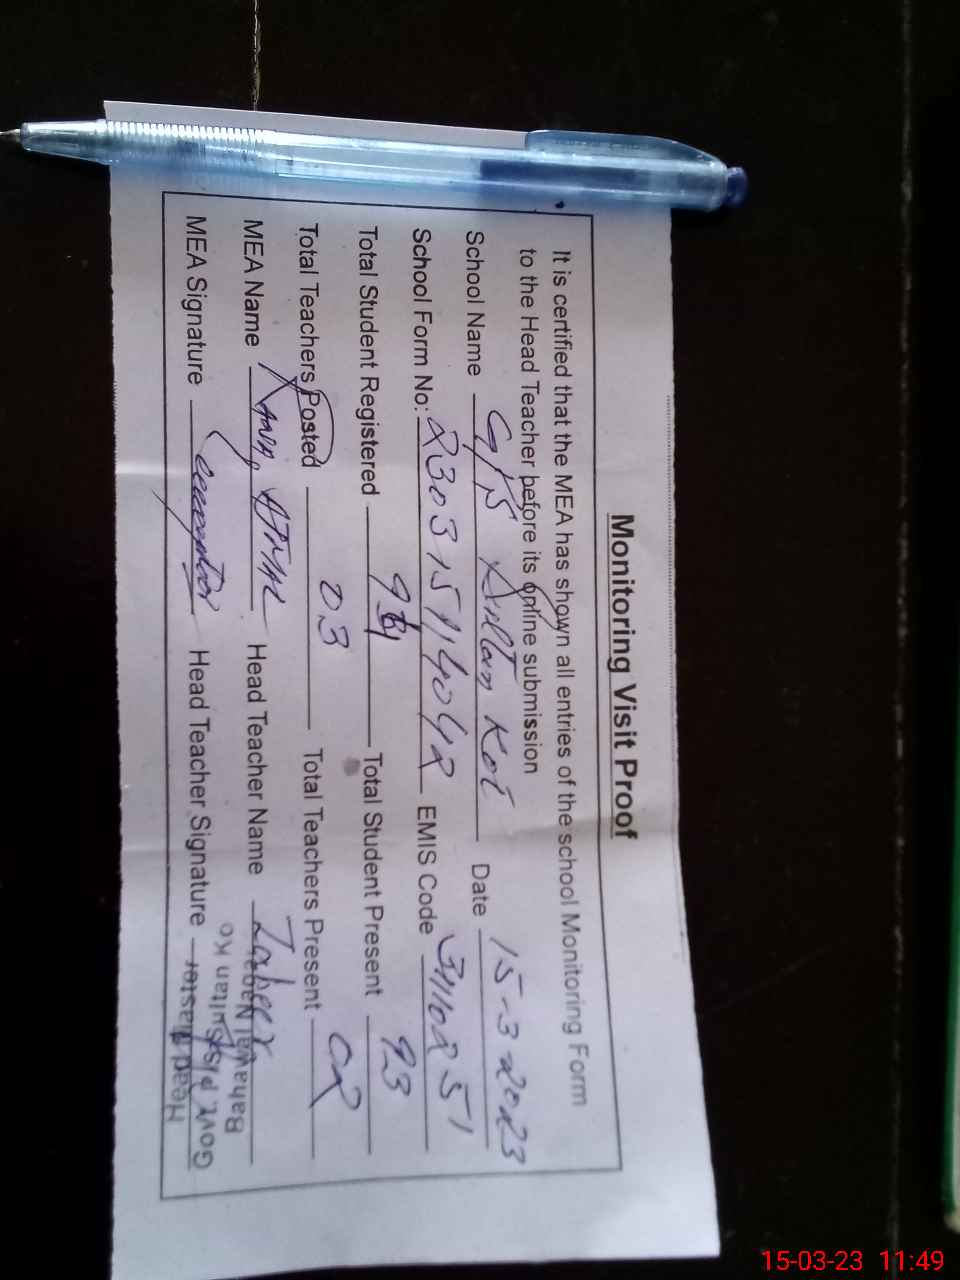 Monitoring Visit Proof
It is certified that the MEA has shown all entries of the school Monitoring Form
to the Head Teacher before its online submission
School Name GPS Sultan Kot Date 15-3-2023
School Form No: EMIS Code 31110251
Total Student Registered Total Student Present 93
Total Teachers Posted 03 Total Teachers Present 02
MEA Name Rana AJMAL Head Teacher Name Zaheer
MEA Signature Head Teacher Signature
Head Master
Govt. P/S Sultan Ko
Bahawal Nagar
15-03-23 11:49